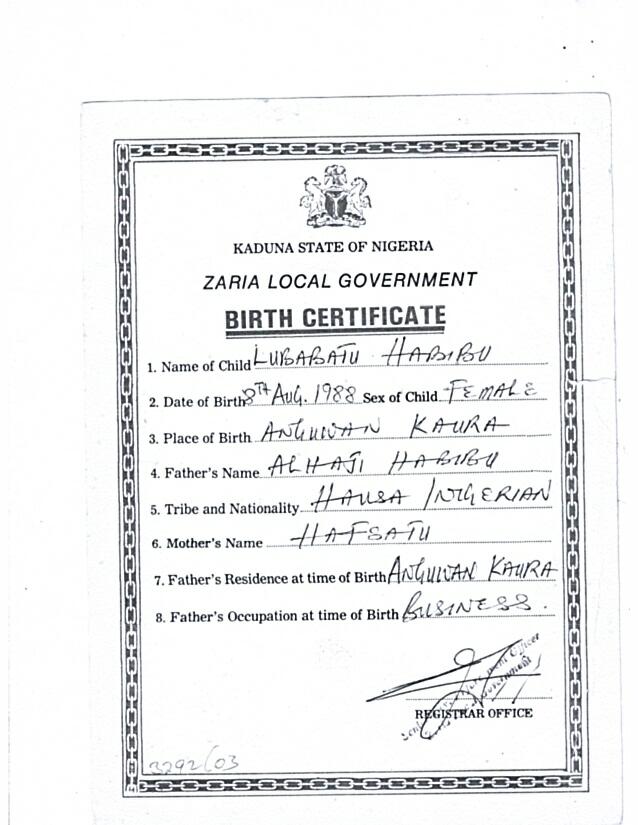 KADUNA STATE OF NIGERIA
ZARIA LOCAL GOVERNMENT
BIRTH CERTIFICATE
1. Name of Child LUBABATU HABIBU
2. Date of Birth 8TH AUG. 1988 Sex of Child FEMALE
3. Place of Birth ANGUWAN KAURA
4. Father's Name ALHAJI HABIBU
5. Tribe and Nationality HAUSA / NIGERIAN
6. Mother's Name HAFSATU
7. Father's Residence at time of Birth ANGUWAN KAURA
8. Father's Occupation at time of Birth BUSINESS.
Officer
Government
REGISTRAR OFFICE
3292/03